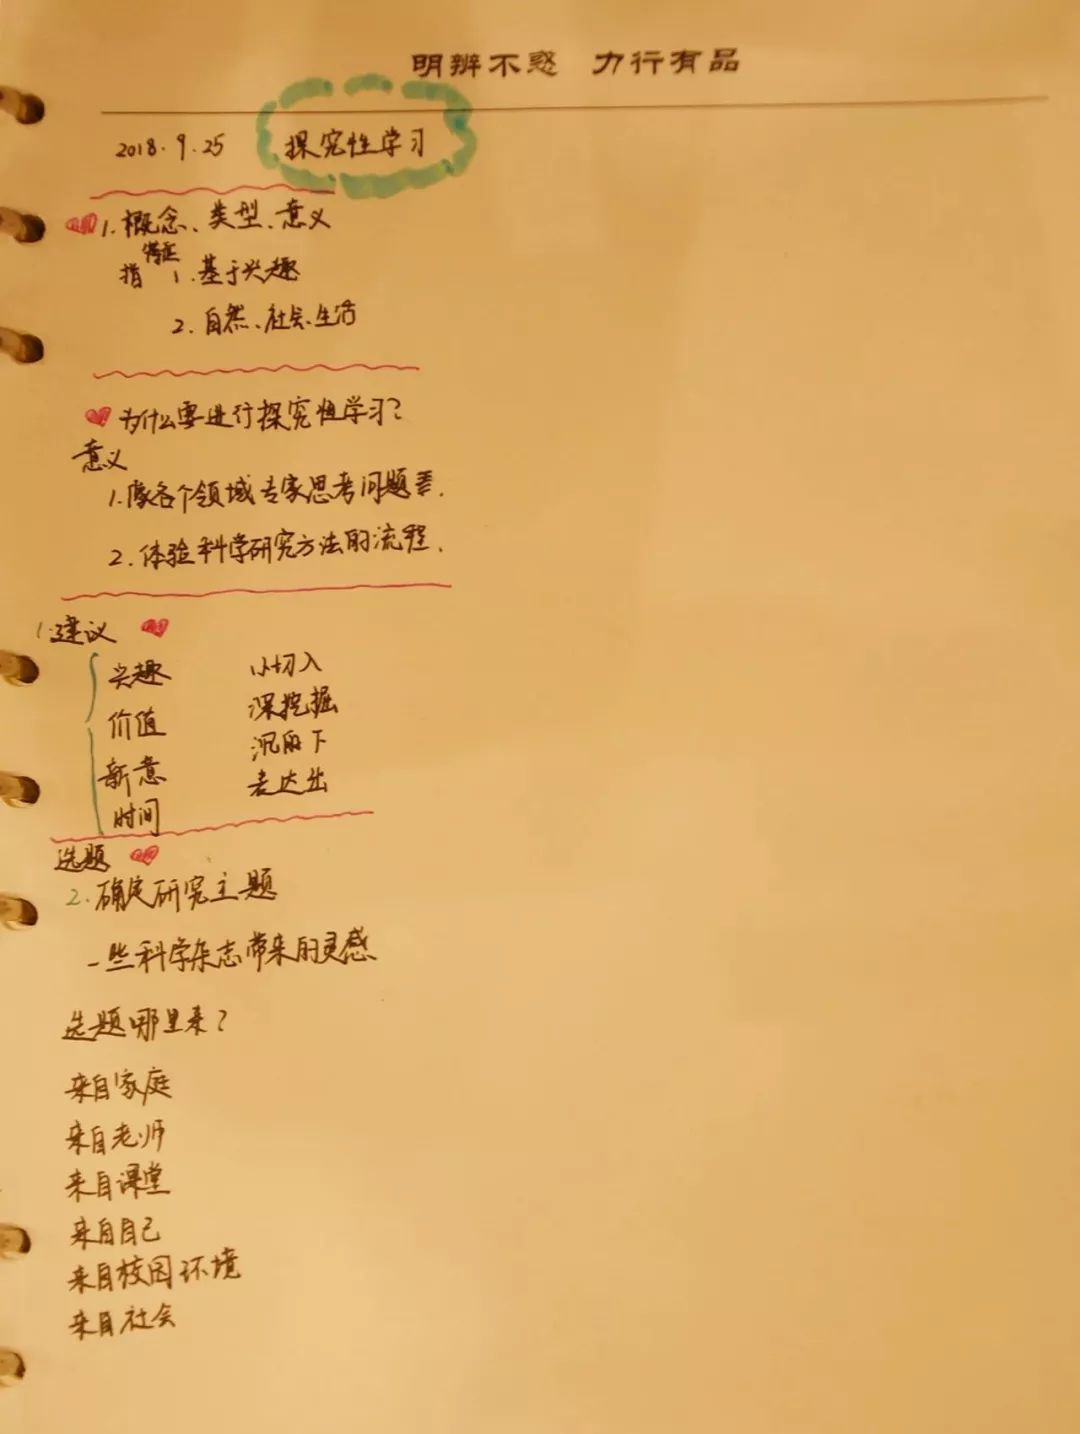 明辨不惑 力行有品
2018.9.25 探究性学习
1.概念、类型、意义
特征
指 1.基于兴趣
2.自然、社会、生活
为什么要进行探究性学习?
意义
1.像各个领域专家思考问题
2.体验科学研究方法的流程.
1.建议
兴趣 小切入
价值 深挖掘
新意 沉的下
时间 表达出
选题
2.确定研究主题
一些科学杂志带来的灵感
选题哪里来?
来自家庭
来自老师
来自课堂
来自自己
来自校园环境
来自社会